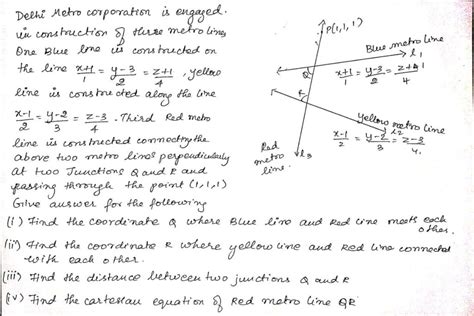 Delhi Metro corporation is engaged
in construction of three metro lines
One Blue line is constructed on
the line x+1/1 = y-3/2 = z+1/4, yellow
line is constructed along the line
x-1/2 = y-2/3 = z-3/4. Third Red metro
line is constructed connecting the
above two metro lines perpendicularly
at two Junctions Q and R and
passing through the point (1,1,1)
Give answer for the following
P(1,1,1)
Blue metro line
l1
Q
x+1/1 = y-3/2 = z+1/4
R
Yellow metro line
l2
x-1/2 = y-2/3 = z-3/4.
Red
metro
line.
l3
(i) Find the coordinate Q where Blue line and Red line meets each
other.
(ii) Find the coordinate R where yellow line and Red line connected
with each other.
(iii) Find the distance between two junctions Q and R
(iv) Find the cartesian equation of Red metro line QR